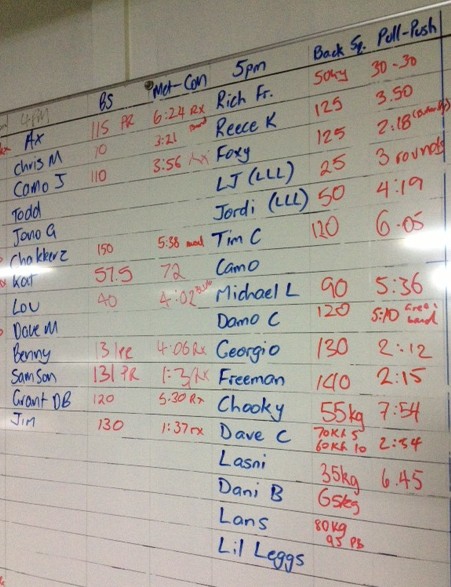 4PM BS Met-Con
Ax 115 PR 6:24 RX
Chris M 70 3:21 mod
Camo J 110 3:56
Todd
Jono G
Chokkerz 150 5:38 mod
Kat 57.5 72
Lou 40 4:02
Dave M
Benny 131 PR 4:06 RX
Samson 131 PR
Grant DB 120 5:30 RX
Jim 130 1:37 rx
5pm Back Sq. Pull-Push
Rich Fr. 50kg 30-30
Reece K 125 3.50
Foxy 125 2:18
LJ (LLL) 25 3 rounds
Jordi (LLL) 50 4:19
Tim C 120 6-05
Camo
Michael L 90 5:36
Damo C 120 5:10 band
Georgio 130 2:12
Freeman 140 2:15
Chooky 55kg 7:54
Dave C 70KG 5 2:54
60KG 10
Lasni 35kg 6.45
Dani B 65kg
Lans 80kg
95 PB
Lil Leggs